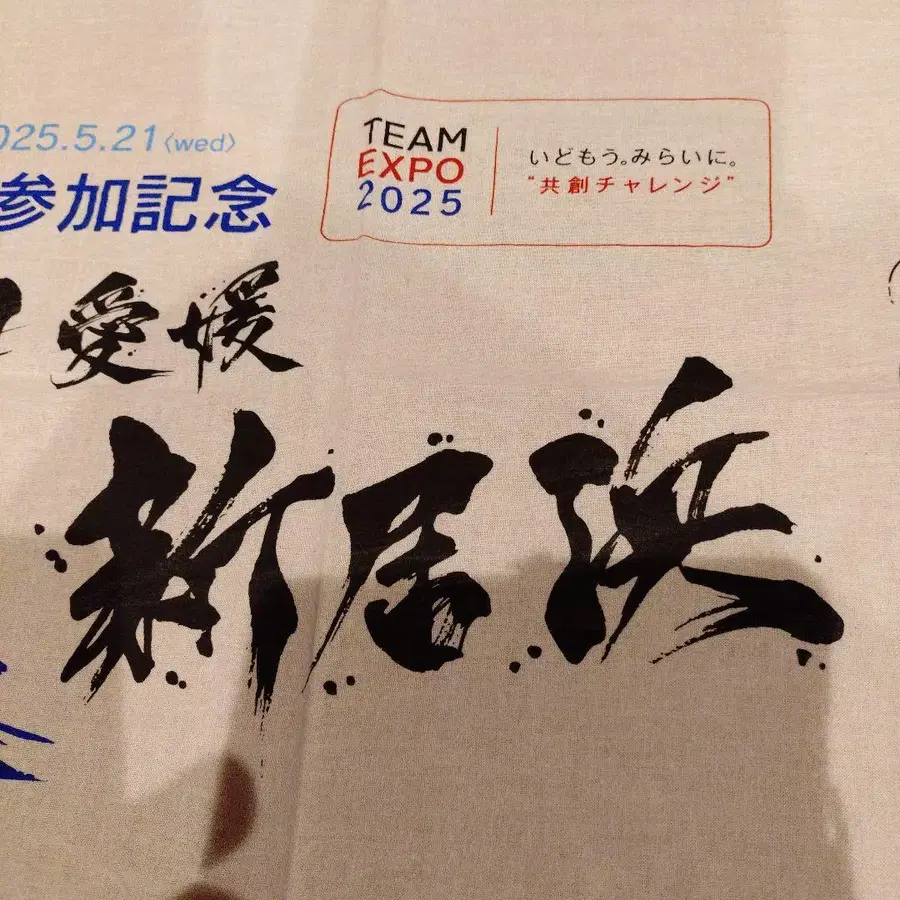 2025.5.21〈wed〉
参加記念
TEAM
EXPO
2025
いどもう。みらいに。
"共創チャレンジ"
愛媛
新居浜